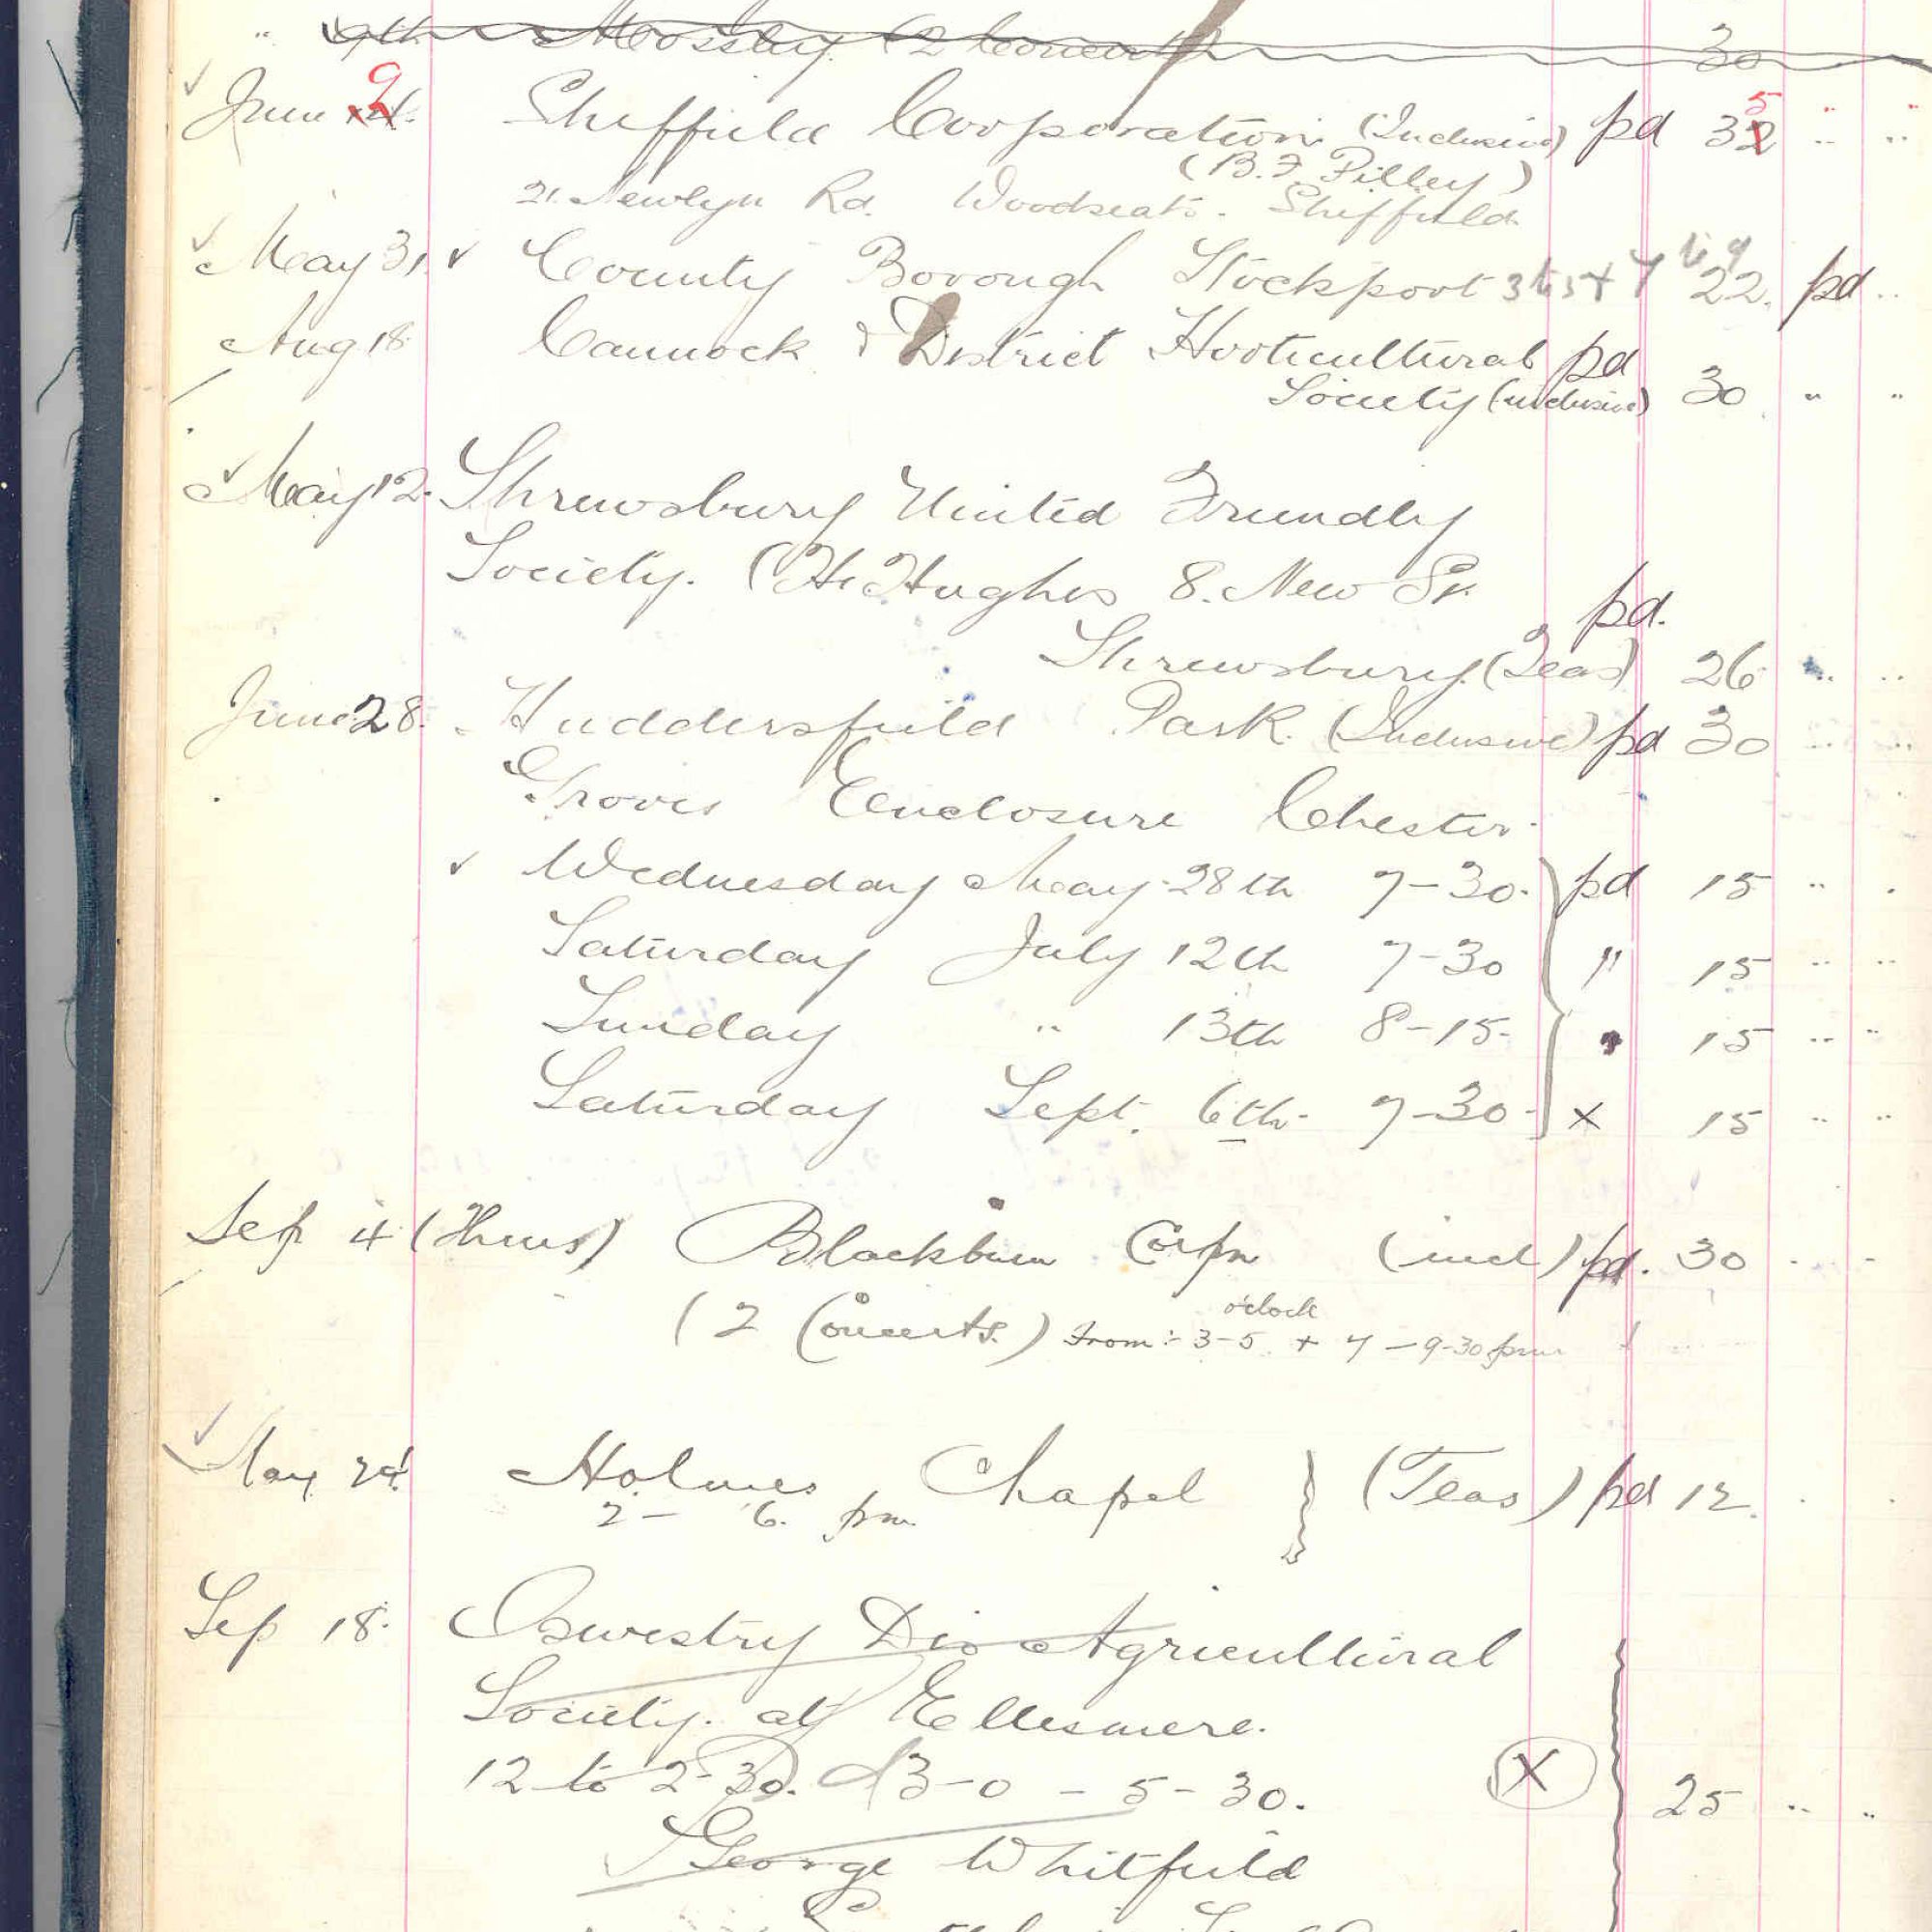 " 9th Mossley. (2 Concerts) 30
June 9 Sheffield Corporation (Inclusive) pd 35 " "
(B. F. Pilley)
21. Newlyn Rd. Woodseats. Sheffield
May 31. County Borough Stockport 3 to 5 + 7 to 9 22. pd ..
Aug 18 Cannock & District Horticultural pd
Society (inclusive) 30 " "
May 12. Shrewsbury United Friendly
Society. (H. Hughes 8. New St. pd.
Shrewsbury. (Teas) 26 " "
June 28. Huddersfield Park. (Inclusive) pd 30 " "
Groves Enclosure Chester.
Wednesday May 28th 7-30. pd 15 " "
Saturday July 12th 7-30 " 15 " "
Sunday " 13th 8-15. " 15 " "
Saturday Sept. 6th. 7-30. X 15 " "
Sep 4 (Thurs) Blackburn Corpn (incl) pd. 30 " "
o'clock
(2 Concerts.) From:- 3-5 + 7-9-30 pm
May 24 Holmes Chapel } (Teas) pd 12
2 - 6. pm.
Sep 18. Oswestry Dis Agricultural
Society. at Ellesmere.
12 to 2-30. & 3-0 - 5-30. X 25 " "
George Whitfield